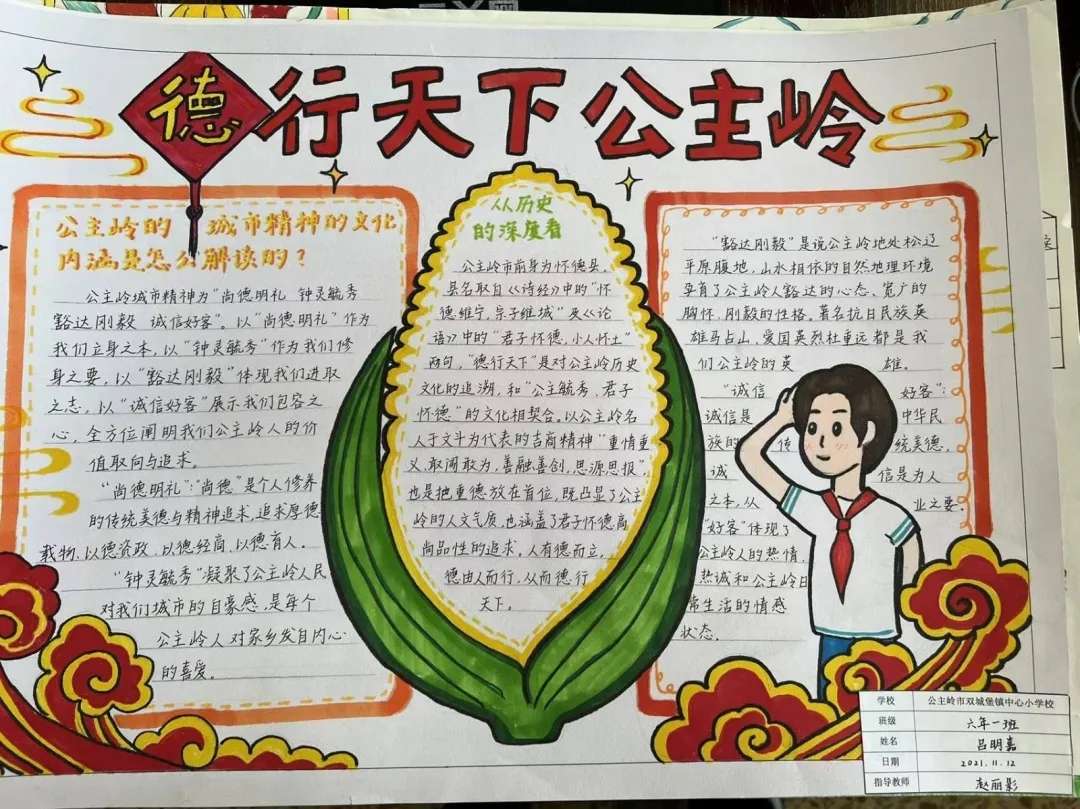 德行天下公主岭
公主岭的 城市精神的文化
内涵是怎么解读的？
公主岭城市精神为“尚德明礼 钟灵毓秀
豁达刚毅 诚信好客”。以“尚德明礼”作为
我们立身之本，以“钟灵毓秀”作为我们修
身之要，以“豁达刚毅”体现我们进取
之志，以“诚信好客”展示我们包容之
心，全方位阐明我们公主岭人的价
值取向与追求。
“尚德明礼”：“尚德”是个人修养
的传统美德与精神追求，追求厚德
载物，以德资政，以德经商，以德育人。
“钟灵毓秀”凝聚了公主岭人民
对我们城市的自豪感，是每个
公主岭人对家乡发自内心
的喜爱。
从历史
的深度看
公主岭市前身为怀德县，
县名取自《诗经》中的“怀
德维宁，宗子维城”及《论
语》中的“君子怀德，小人怀土”
两句，“德行天下”是对公主岭历史
文化的追溯，和“公主毓秀，君子
怀德”的文化相契合。以公主岭名
人于文斗为代表的吉商精神“重情重
义，敢闯敢为，善融善创，思源思报”，
也是把重德放在首位，既凸显了公主
岭的人文气质，也涵盖了君子怀德高
尚品性的追求，人有德而立，
德由人而行，从而德行
天下。
“豁达刚毅”是说公主岭地处松辽
平原腹地，山水相依的自然地理环境
孕育了公主岭人豁达的心态、宽广的
胸怀，刚毅的性格。著名抗日民族英
雄马占山，爱国英烈杜重远都是我
们公主岭的英 雄。
“诚信 好客”：
诚信是 中华民
族的 传 统美德，
诚 信是为人
之本，从 业之要。
“好客”体现了
公主岭人的热情，
热诚和公主岭日
常生活的情感
状态。
学校 公主岭市双城堡镇中心小学校
班级 六年一班
姓名 吕明嘉
日期 2021.11.12
指导教师 赵丽影